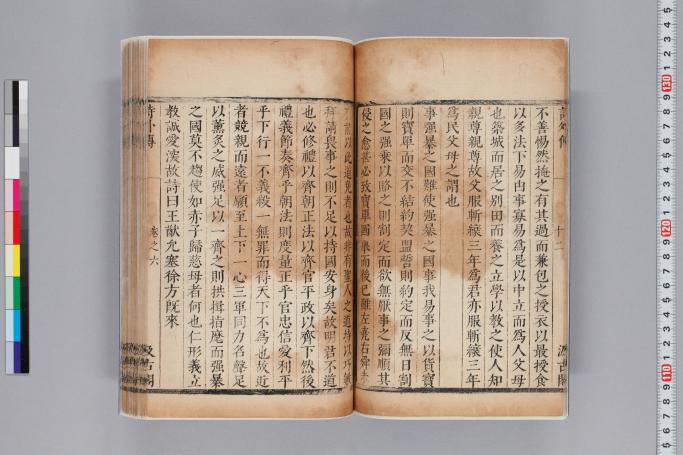 不善惕然掩之有其過而兼包之授衣以最授食
以多法下易由事寡易為是以中立而為人父母
也築城而居之別田而養之立學以教之使人知
親尊親尊故父服斬縗三年為君亦服斬縗三年
為民父母之謂也
事強暴之國難使強暴之國事我易事之以貨寶
則寶單而交不結約契盟誓則約定而反無日割
國之強乘以賂之則割定而欲無厭事之彌順其
侵之愈甚必致寶單國舉而後已雖左堯右舜未
有能以此道免者也故非有聖人之道持以巧敏
拜請畏事之則不足以持國安身矣故明君不道
也必修禮以齊朝正法以齊官平政以齊下然後
禮義節奏齊乎朝法則度量正乎官忠信愛利平
乎下行一不義殺一無罪而得天下不為也故近
者競親而遠者願至上下一心三軍同力名聲足
以薰炙之威強足以一齊之則拱揖指麾而強暴
之國莫不趨使如赤子歸慈母者何也仁形義立
教誠愛深故詩曰王猷允塞徐方既來
詩外傳
卷之六
汲古閣
詩外傳
十二
汲古閣